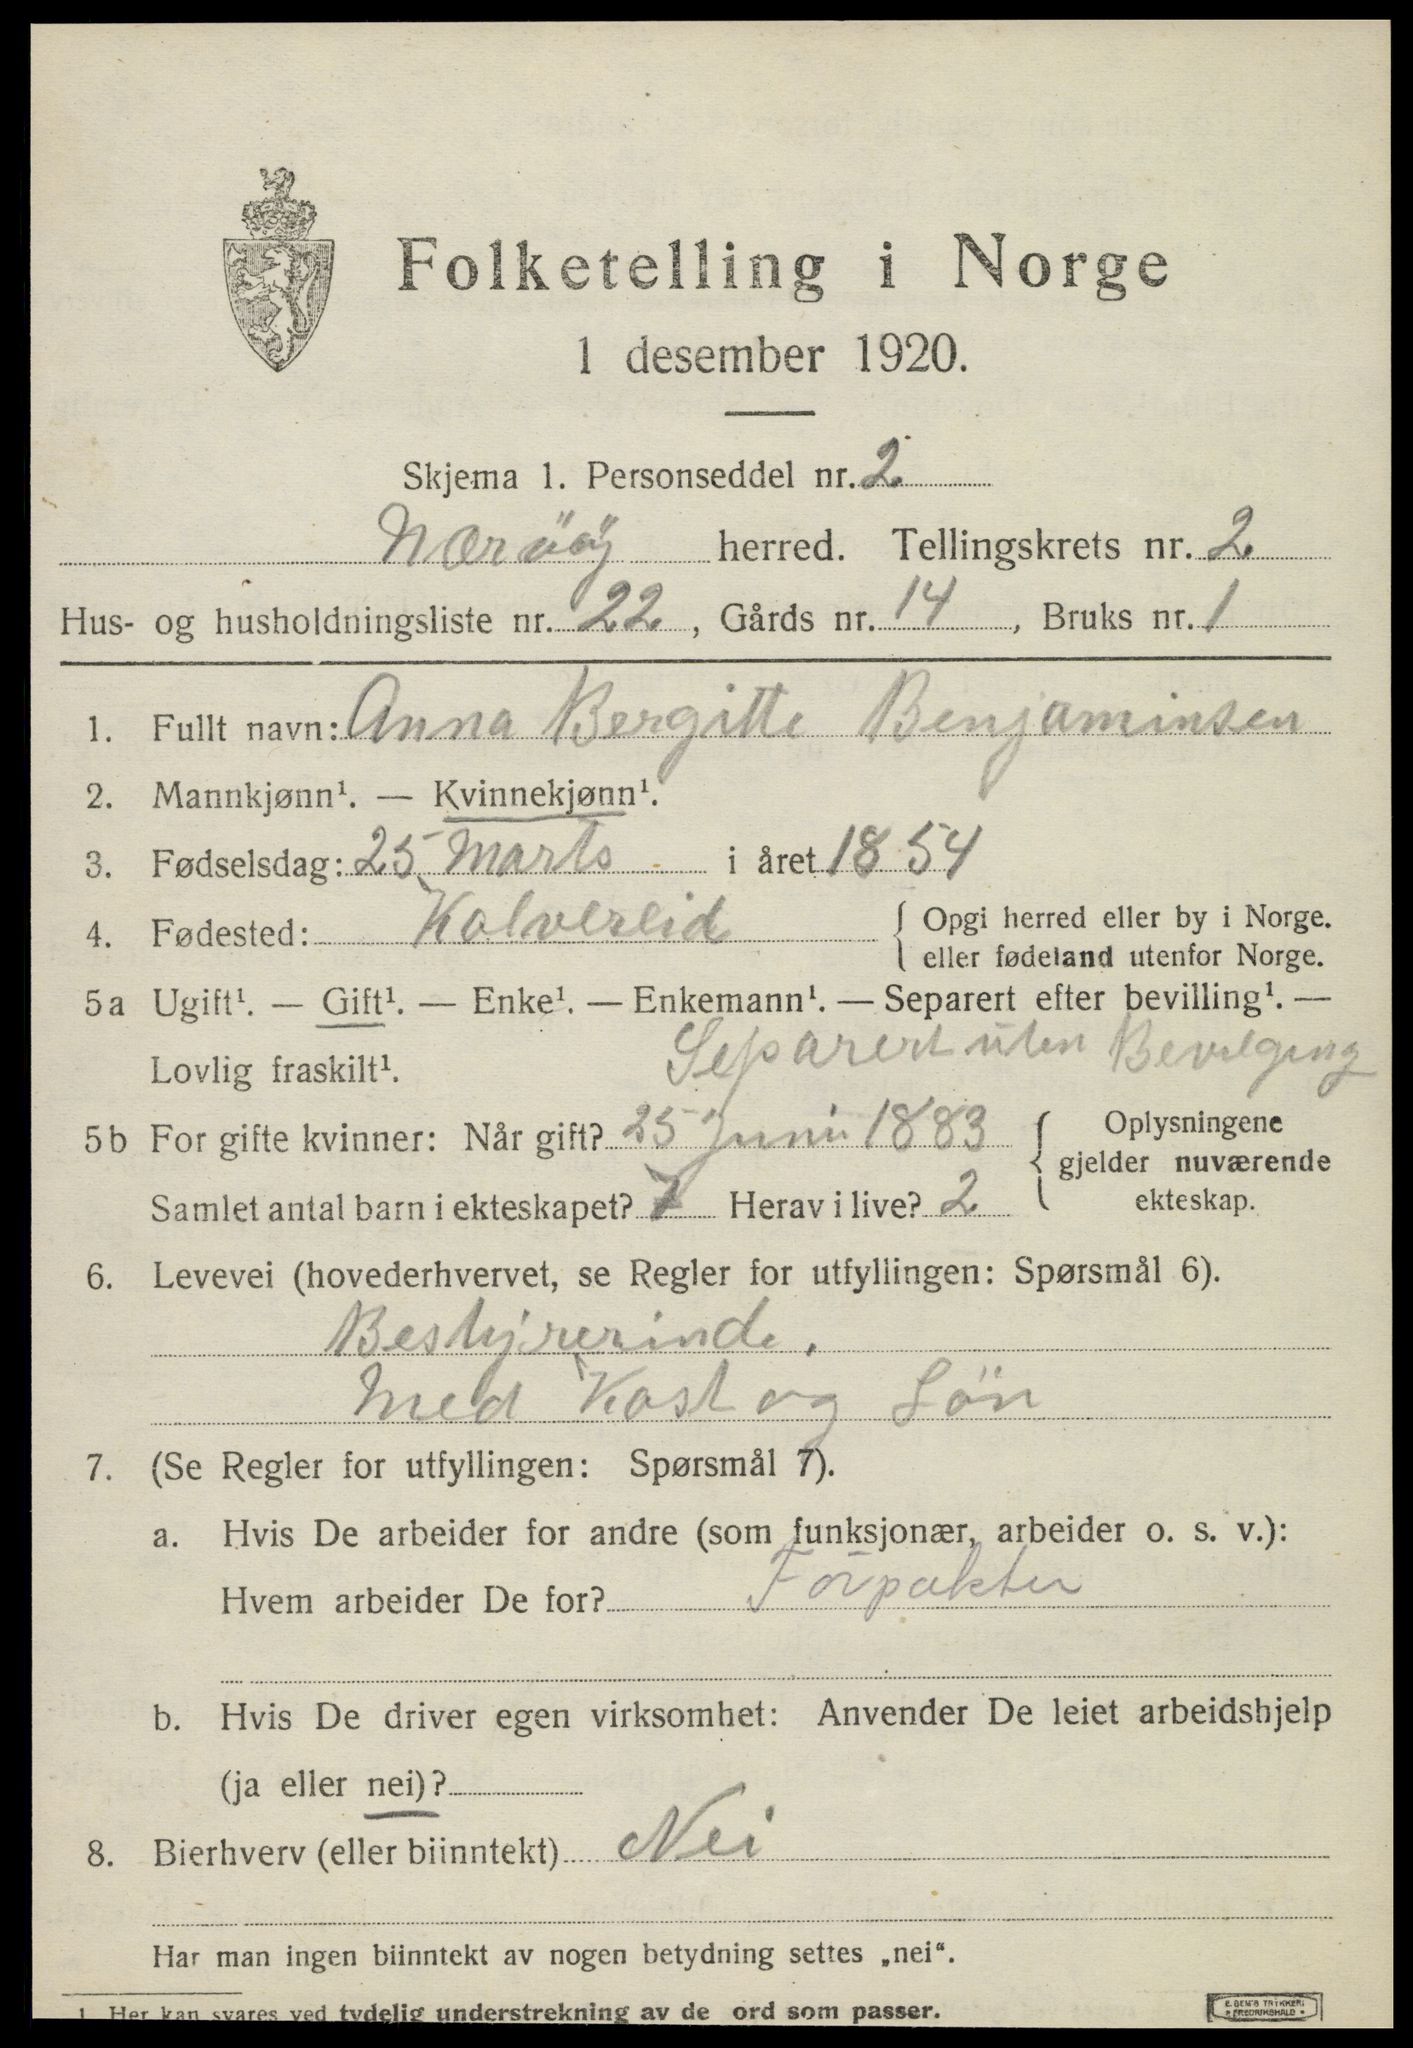 Folketelling i Norge
1 desember 1920.
Skjema 1. Personseddel nr. 2
Næröÿ herred. Tellingskrets nr. 2
Hus- og husholdningsliste nr. 22, Gårds nr. 14, Bruks nr. 1
1. Fullt navn: Anna Bergitte Benjaminsen
2. Mannkjønn¹. — Kvinnekjønn¹.
3. Fødselsdag: 25 Marts i året 1854
4. Fødested: Kolvereid { Opgi herred eller by i Norge.
eller fødeland utenfor Norge.
5a Ugift¹. — Gift¹. — Enke¹. — Enkemann¹. — Separert efter bevilling¹. —
Lovlig fraskilt¹. Separert uten Bevilging
5b For gifte kvinner: Når gift? 25 Juni 1883 { Oplysningene
gjelder nuværende
Samlet antal barn i ekteskapet? 7 Herav i live? 2 ekteskap.
6. Levevei (hovederhvervet, se Regler for utfyllingen: Spørsmål 6).
Bestyrerinde.
Med Kost og Lön
7. (Se Regler for utfyllingen: Spørsmål 7).
a. Hvis De arbeider for andre (som funksjonær, arbeider o. s. v.):
Hvem arbeider De for? Forpakter
b. Hvis De driver egen virksomhet: Anvender De leiet arbeidshjelp
(ja eller nei)?
8. Bierhverv (eller biinntekt) Nei
Har man ingen biinntekt av nogen betydning settes „nei“.
1. Her kan svares ved tydelig understrekning av de ord som passer.
E. SEM'S TRYKKERI
FREDRIKSHALD